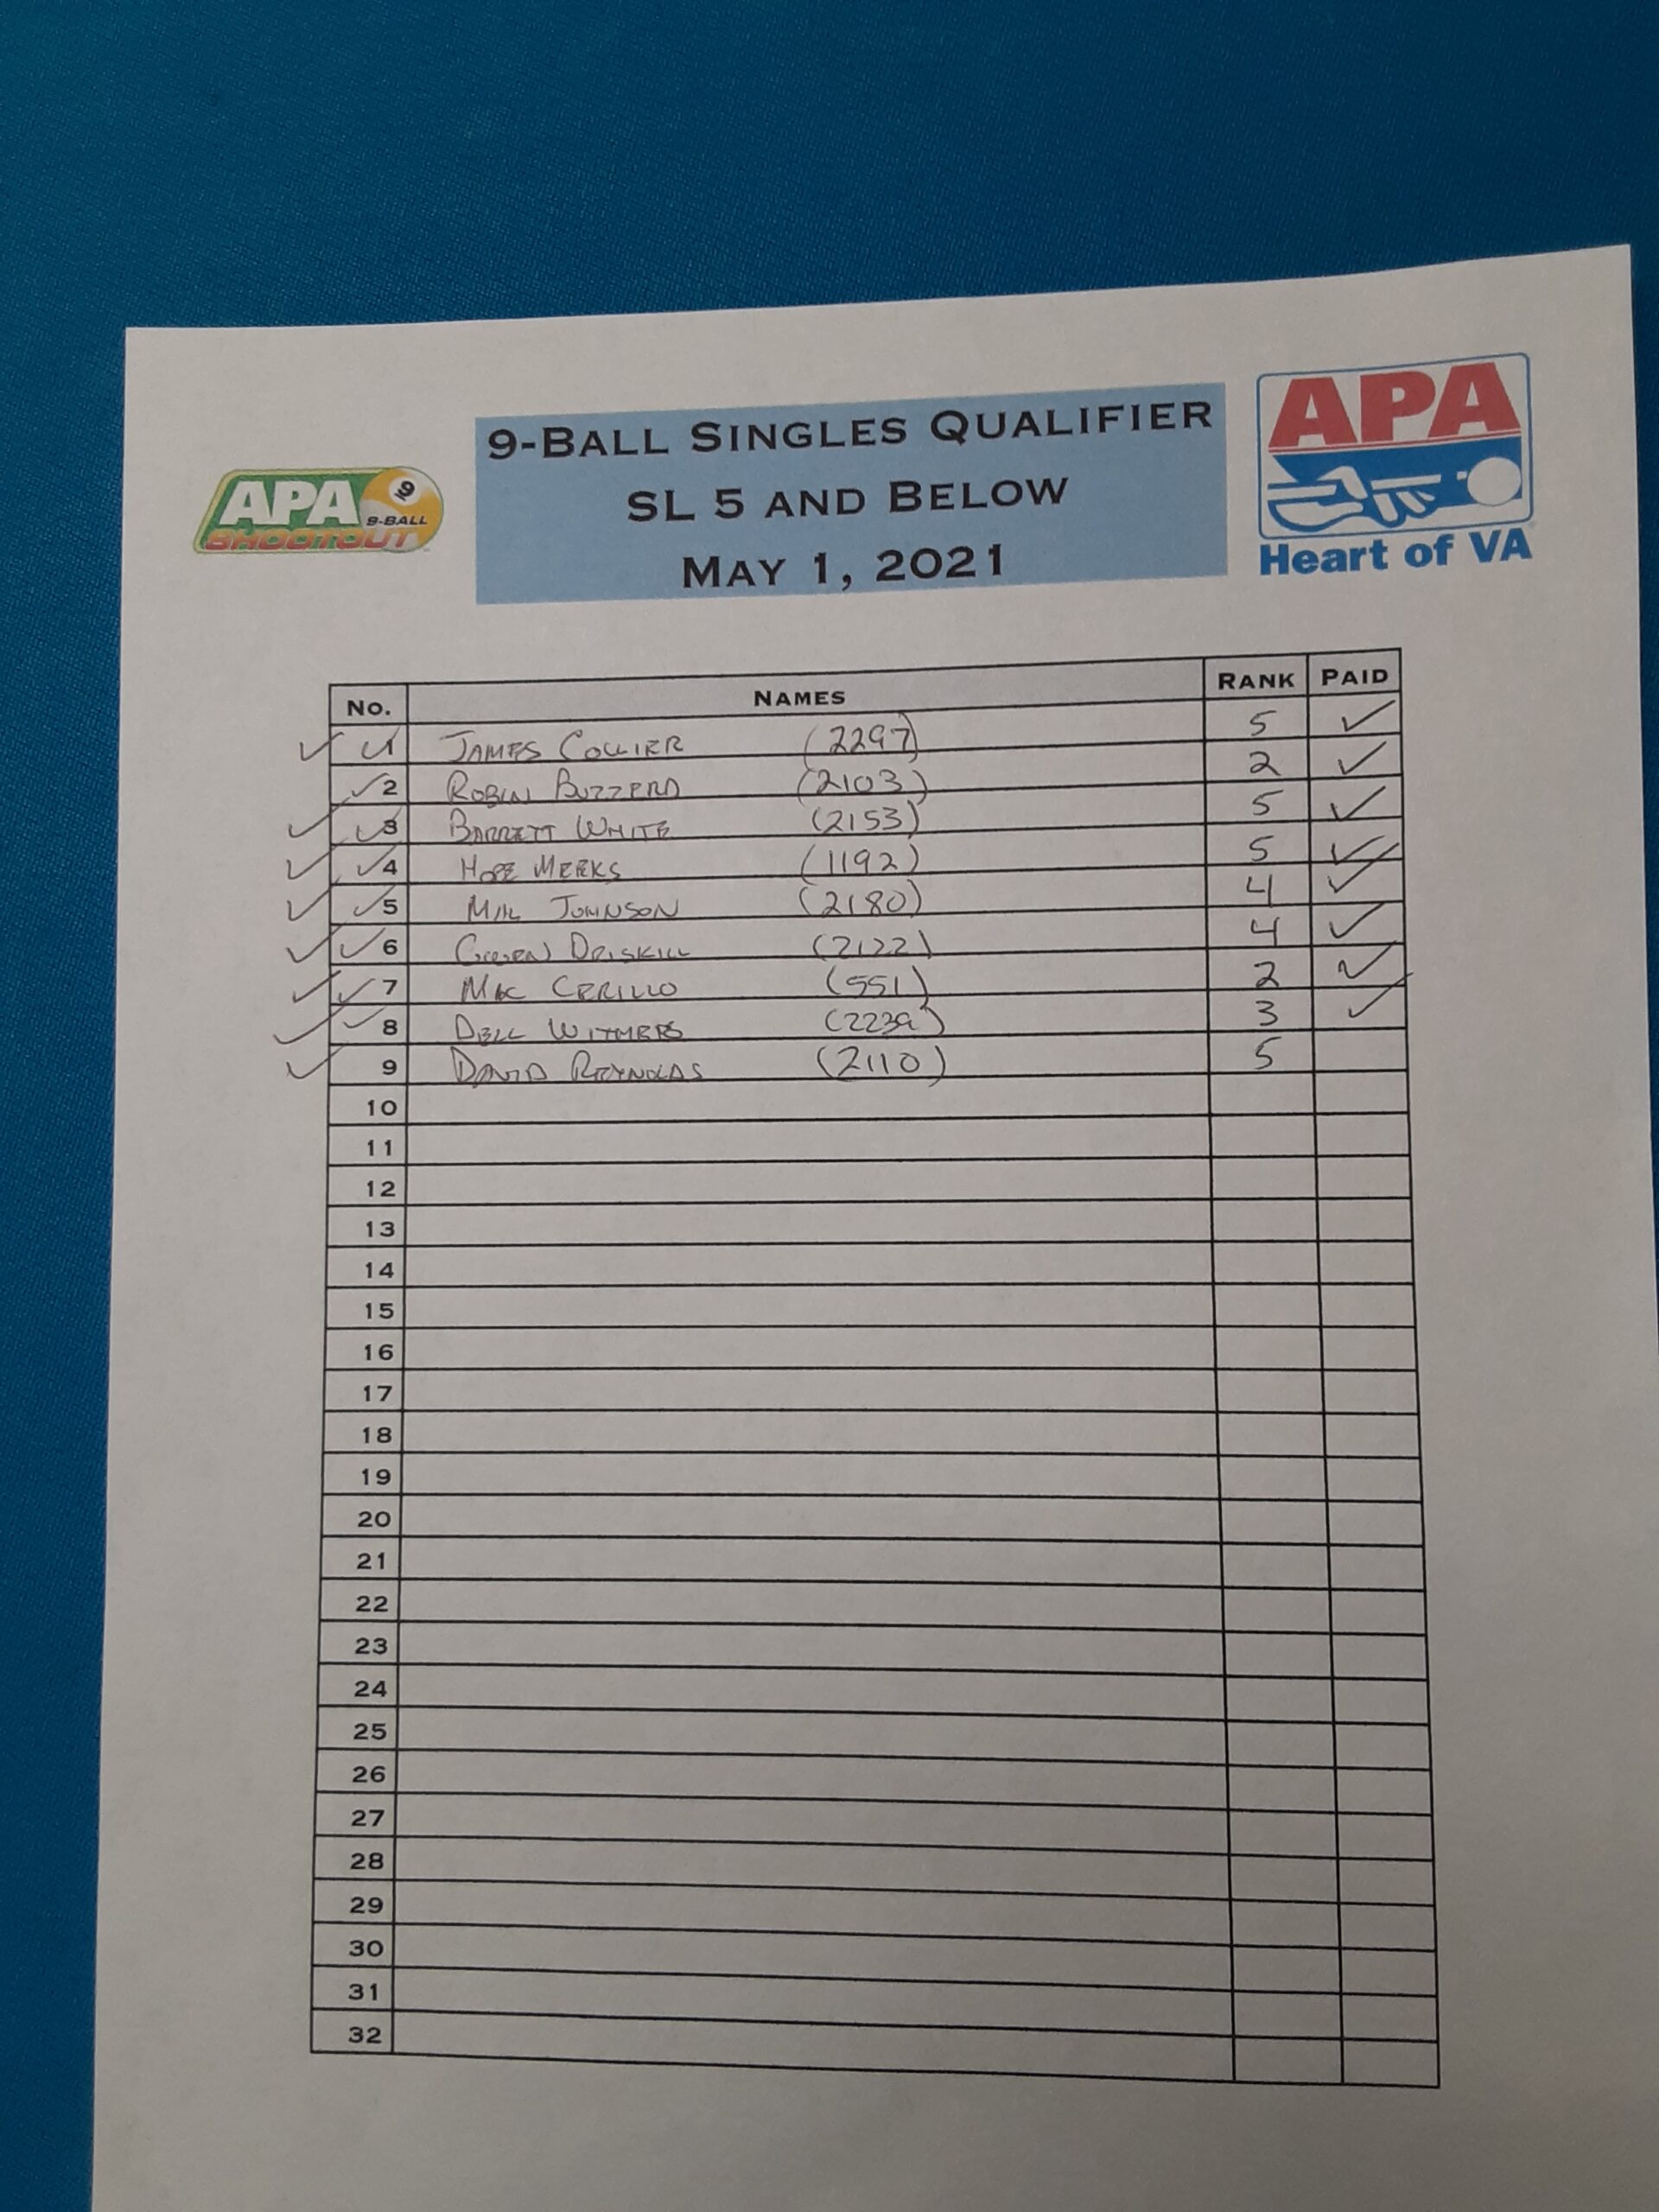 APA
9-BALL
SHOOTOUT
9-BALL SINGLES QUALIFIER
SL 5 AND BELOW
MAY 1, 2021
APA
Heart of VA
No. NAMES RANK PAID
1 JAMES COLLIER (2297) 5 ✓
2 ROBIN BUZZERD (2103) 2 ✓
3 BARRETT WHITE (2153) 5 ✓
4 HOPE MEEKS (1192) 5 ✓
5 JOHNSON (2180) 4 ✓
6 DRISKILL (2122) 4 ✓
7 CERILLO (551) 2 ✓
8 DELL WITHERS 3 ✓
9 DAVID REYNOLDS (2110) 5
10
11
12
13
14
15
16
17
18
19
20
21
22
23
24
25
26
27
28
29
30
31
32